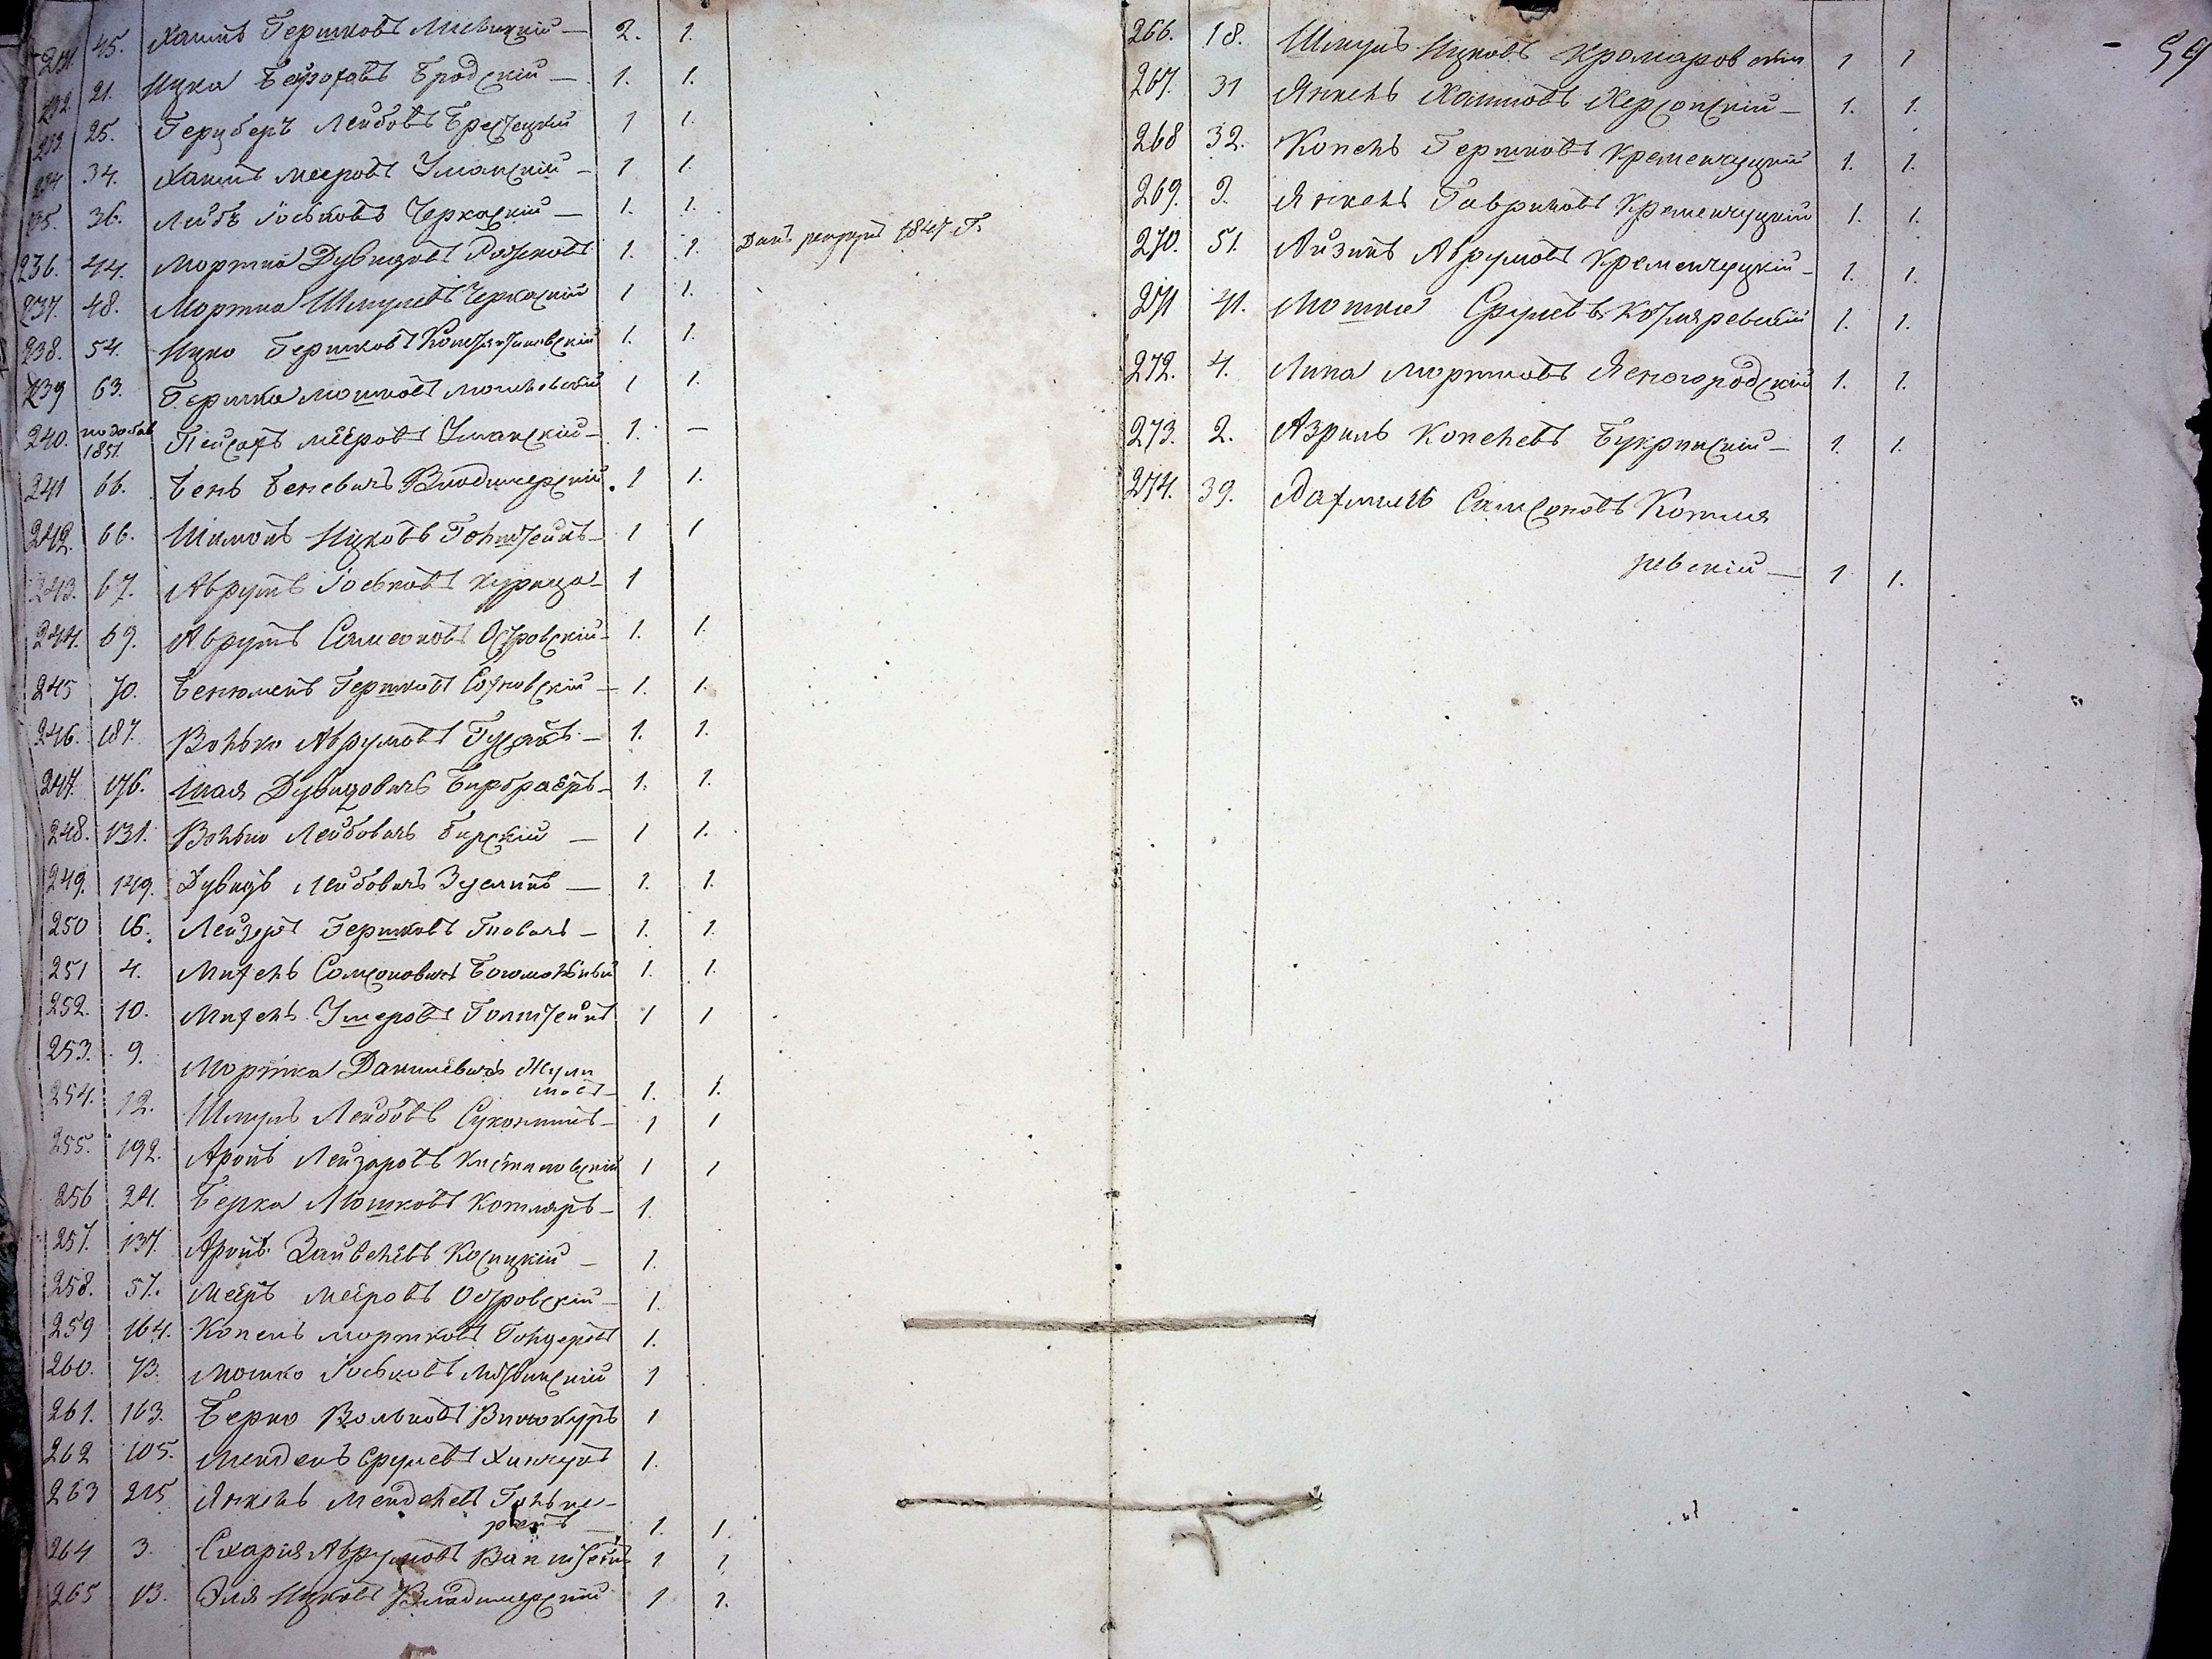 231. 45. Хаимъ Гершковъ Лисицкій — 2. 1.
232. 21. Ицка Бейрохавъ Бродскій — 1. 1.
233. 25. Герцберъ Лейбовъ Бресецкій 1 1.
234 34. Хаимъ Мееровъ Уманскій — 1 1.
235. 36. Лейбъ Іоськовъ Черкаскій — 1. 1.
236. 44. Мортко Дувидовъ 1. 1. Данъ рекрутъ 1847 Г.
237. 48. Мортко Шмулевъ Черкаскій 1 1.
238. 54. Ицко Гершковъ Константиновскій 1. 1.
239 63. Гершко Мошковъ 1 1.
240. по добав 1851. Пейсахъ Мееровъ Уманскій — 1. —
241 66. Бень Беневичъ Владимерскій 1 1.
242. 66. Шимонъ Ицковъ Гольштейнъ — 1 1
243. 67. Аврумъ Іоськовъ Курица — 1
244. 69. Аврумъ Самсоновъ Островскій — 1. 1.
245 70. Бенюменъ Гершковъ Сотковскій — 1. 1.
246. 187. Волько Аврумовъ — 1. 1.
247. 176. Шая Дувидовичъ Бирбраеръ — 1. 1.
248. 131. Волько Лейбовичъ Бирскій — 1 1.
249. 149. Дувидъ Лейбовичъ — 1. 1.
250 16. Лейзеръ Гершковъ — 1. 1.
251 4. Михель Самсоновичъ Богомольный 1. 1.
252. 10. Михель Умеровъ Голштейнъ 1 1
253. 9. Мортко Данилевичъ
— 1. 1.
254. 12. Шмуль Лейбовъ — 1 1
255. 192. Аронъ Лейзаровъ 1 1
256 24. Берка Мошковъ Котляръ — 1.
257. 137. Аронъ Зайвелевъ Косицкій — 1.
258. 57. Меёръ Мееровъ Островскій — 1.
259 164. Копель Мортковъ 1.
260. 73. Мошко Іоськовъ Литвинскій 1
261. 163. Берко Вольковъ Винокуръ 1
262 105. Мендель Срулевъ 1.
263 215 Янкель Менделевъ Гальпе-
ринъ — 1. 1.
264 3. Схарія Аврумовъ Ванштейнъ 1 1.
265 13. Эля Ицковъ Владимерскій 1 1.
99
266. 18. Шмуль Ицковъ Крамаровскій 1 1
267. 31 Янкель Хаимовъ Херсонскій — 1. 1.
268 32. Копель Гершковъ Кременчуцкій 1. 1.
269. 3. Янкель Гавриловъ Кременчуцкій 1. 1.
270. 51. Айзикъ Аврумовъ Кременчуцкій — 1. 1.
271 41. Мошко Срулевъ Котляревскій 1. 1.
272. 4. Липа Мортковъ Ясногородскій 1. 1.
273. 2. Азриль Копелевъ Букринскій — 1. 1.
274. 39. Рахмиль Самсоновъ Котля
ревскій — 1 1.